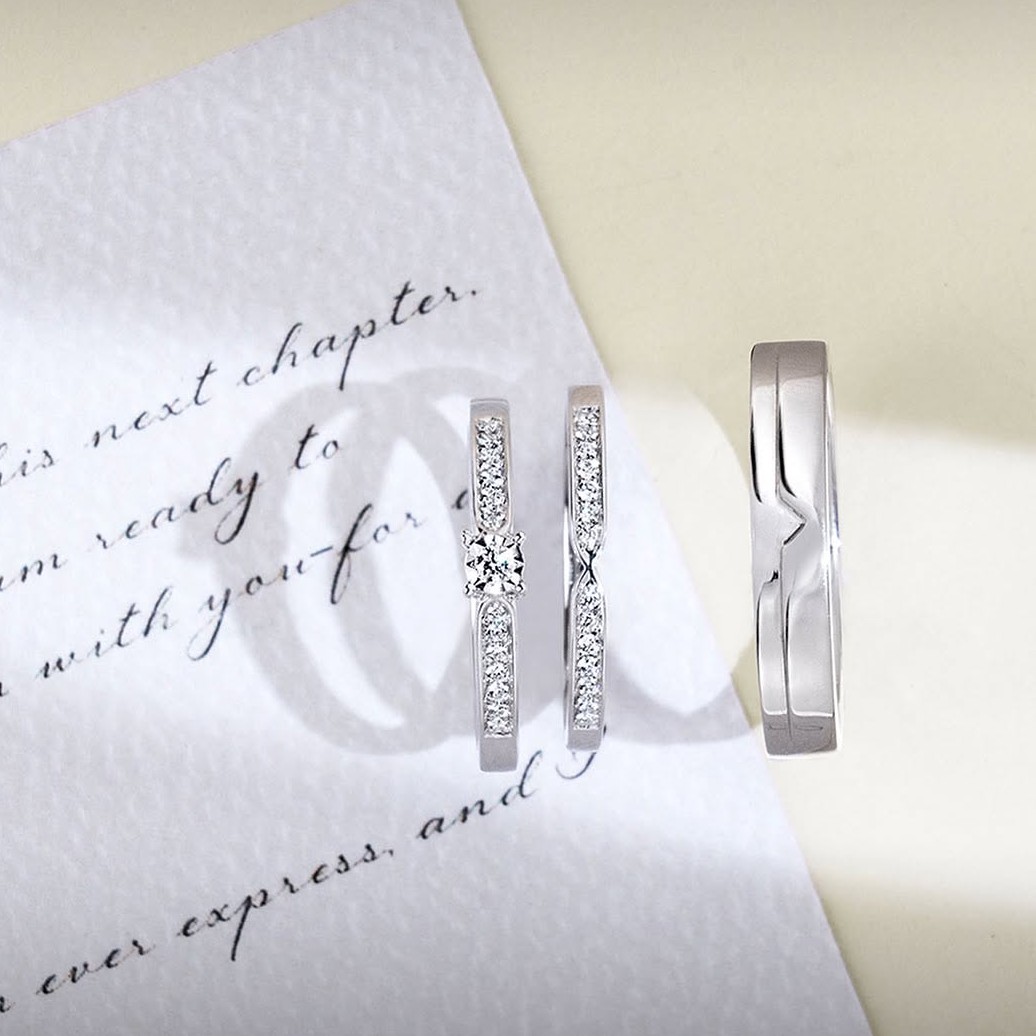 his next chapter.
am ready to
with you-for
ever express, and